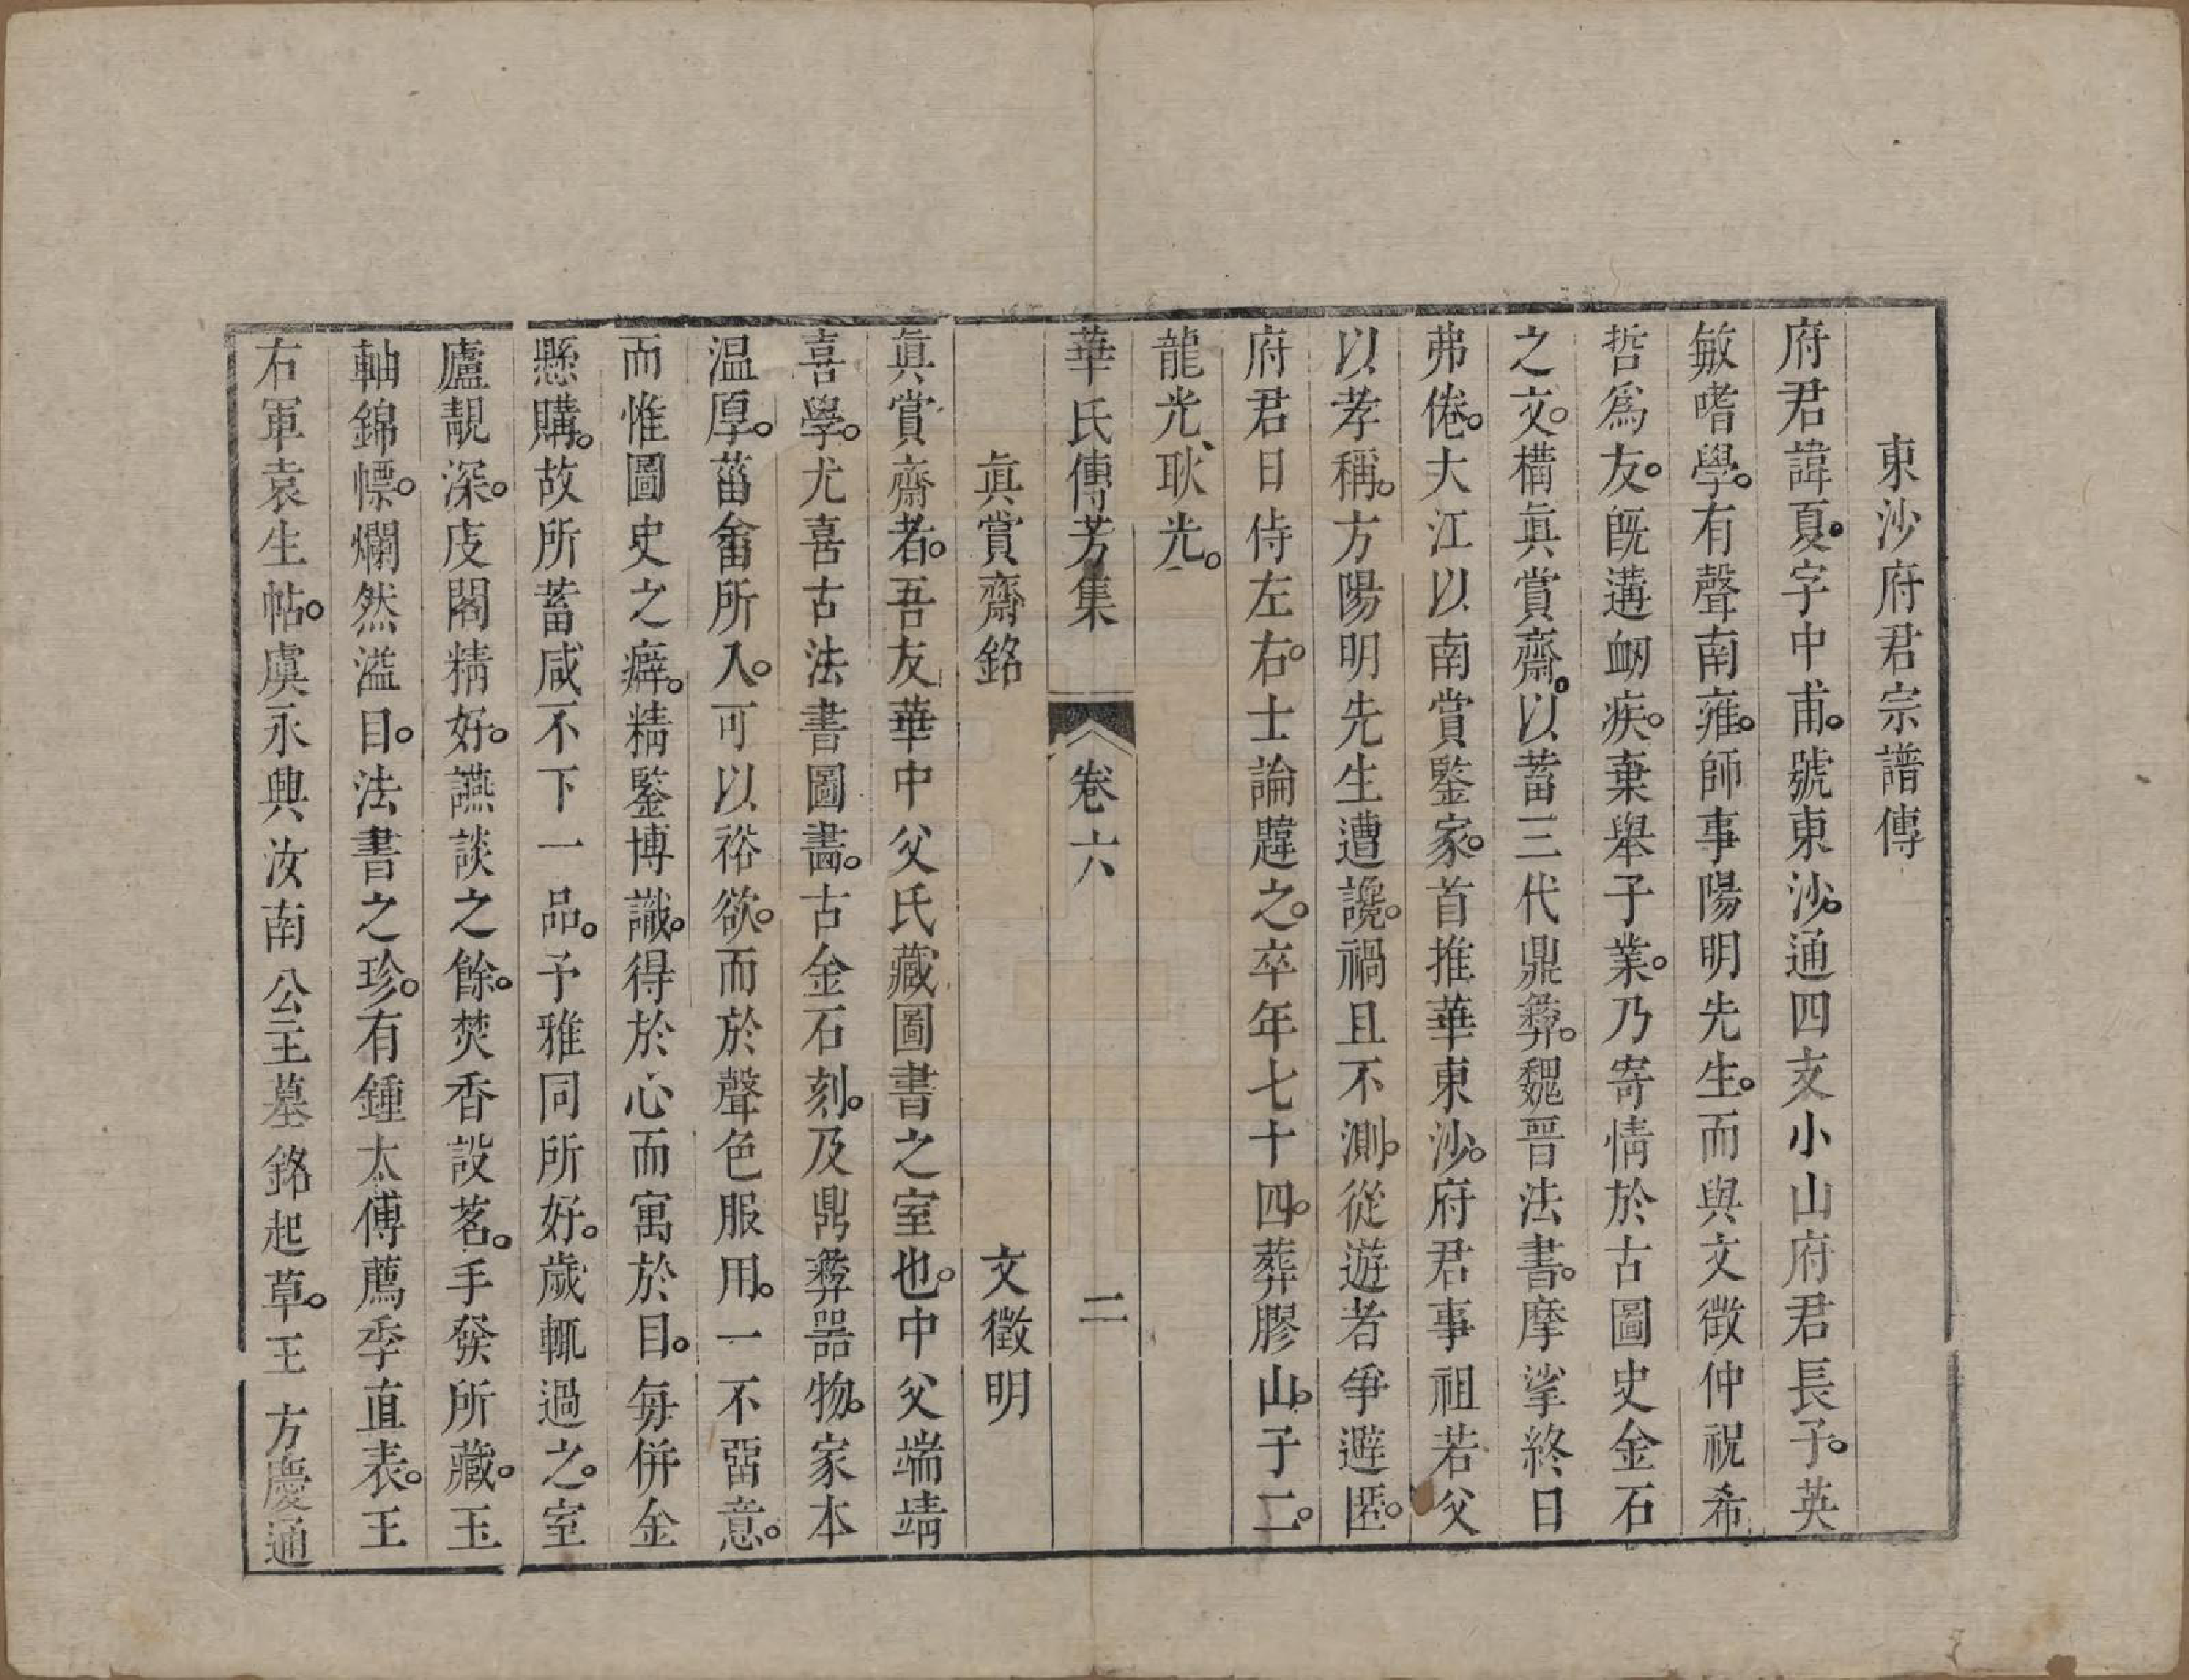 東沙府君宗譜傳
府君諱夏。字中甫。號東沙。通四支小山府君長子。英
敏嗜學。有聲南雍。師事陽明先生。而與文徵仲祝希
哲爲友。旣遘衂疾。棄舉子業。乃寄情於古圖史金石
之文。構眞賞齋。以蓄三代鼎彝。魏晉法書。摩挲終日
弗倦。大江以南賞鑒家。首推華東沙。府君事祖若父
以孝稱。方陽明先生遭讒。禍且不測。從遊者爭避匿。
府君日侍左右。士論韙之。卒年七十四。葬膠山。子二。
龍光、耿光。
華氏傳芳集 卷六 二
眞賞齋銘 文徵明
眞賞齋者。吾友華中父氏藏圖書之室也。中父端靖
喜學。尤喜古法書圖畵。古金石刻。及鼎彝器物。家本
温厚。菑畬所入。可以裕欲。而於聲色服用。一不畱意。
而惟圖史之癖。精鑒博識。得於心而寓於目。每併金
懸購。故所蓄咸不下一品。予雅同所好。歲輒過之。室
廬靚深。庋閣精好。讌談之餘。焚香設茗。手發所藏。玉
軸錦幖。爛然溢目。法書之珍。有鍾太傅薦季直表。王
右軍袁生帖。虞永興汝南公主墓銘起草。王方慶通